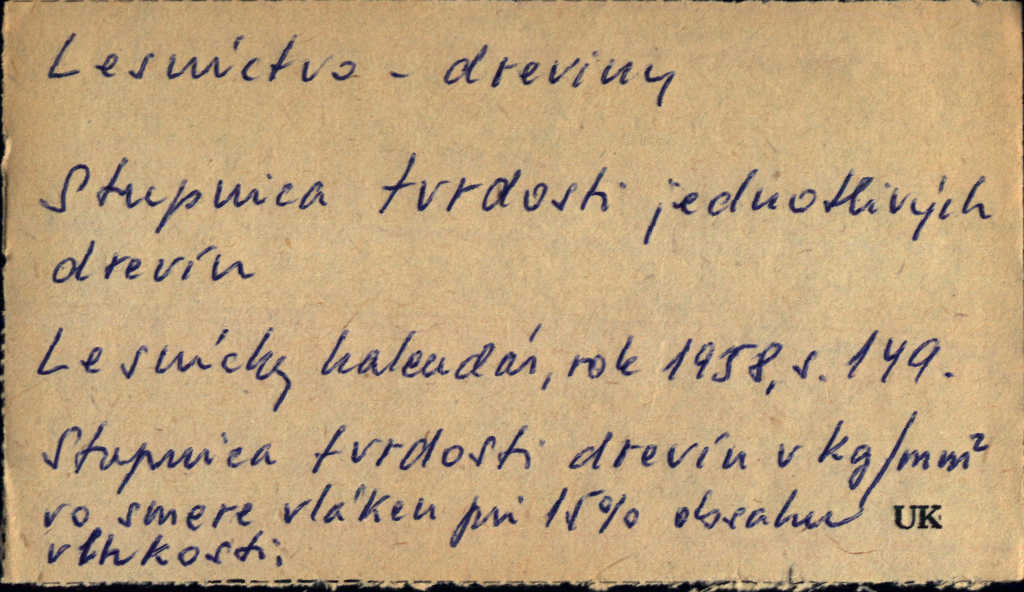 Lesníctvo - dreviny
Stupnica tvrdosti jednotlivých
drevín
Lesnícky kalendár, rok 1958, s. 149.
Stupnica tvrdosti drevín v kg/mm²
vo smere vláken pri 15% obsahu UK
vlhkosti.